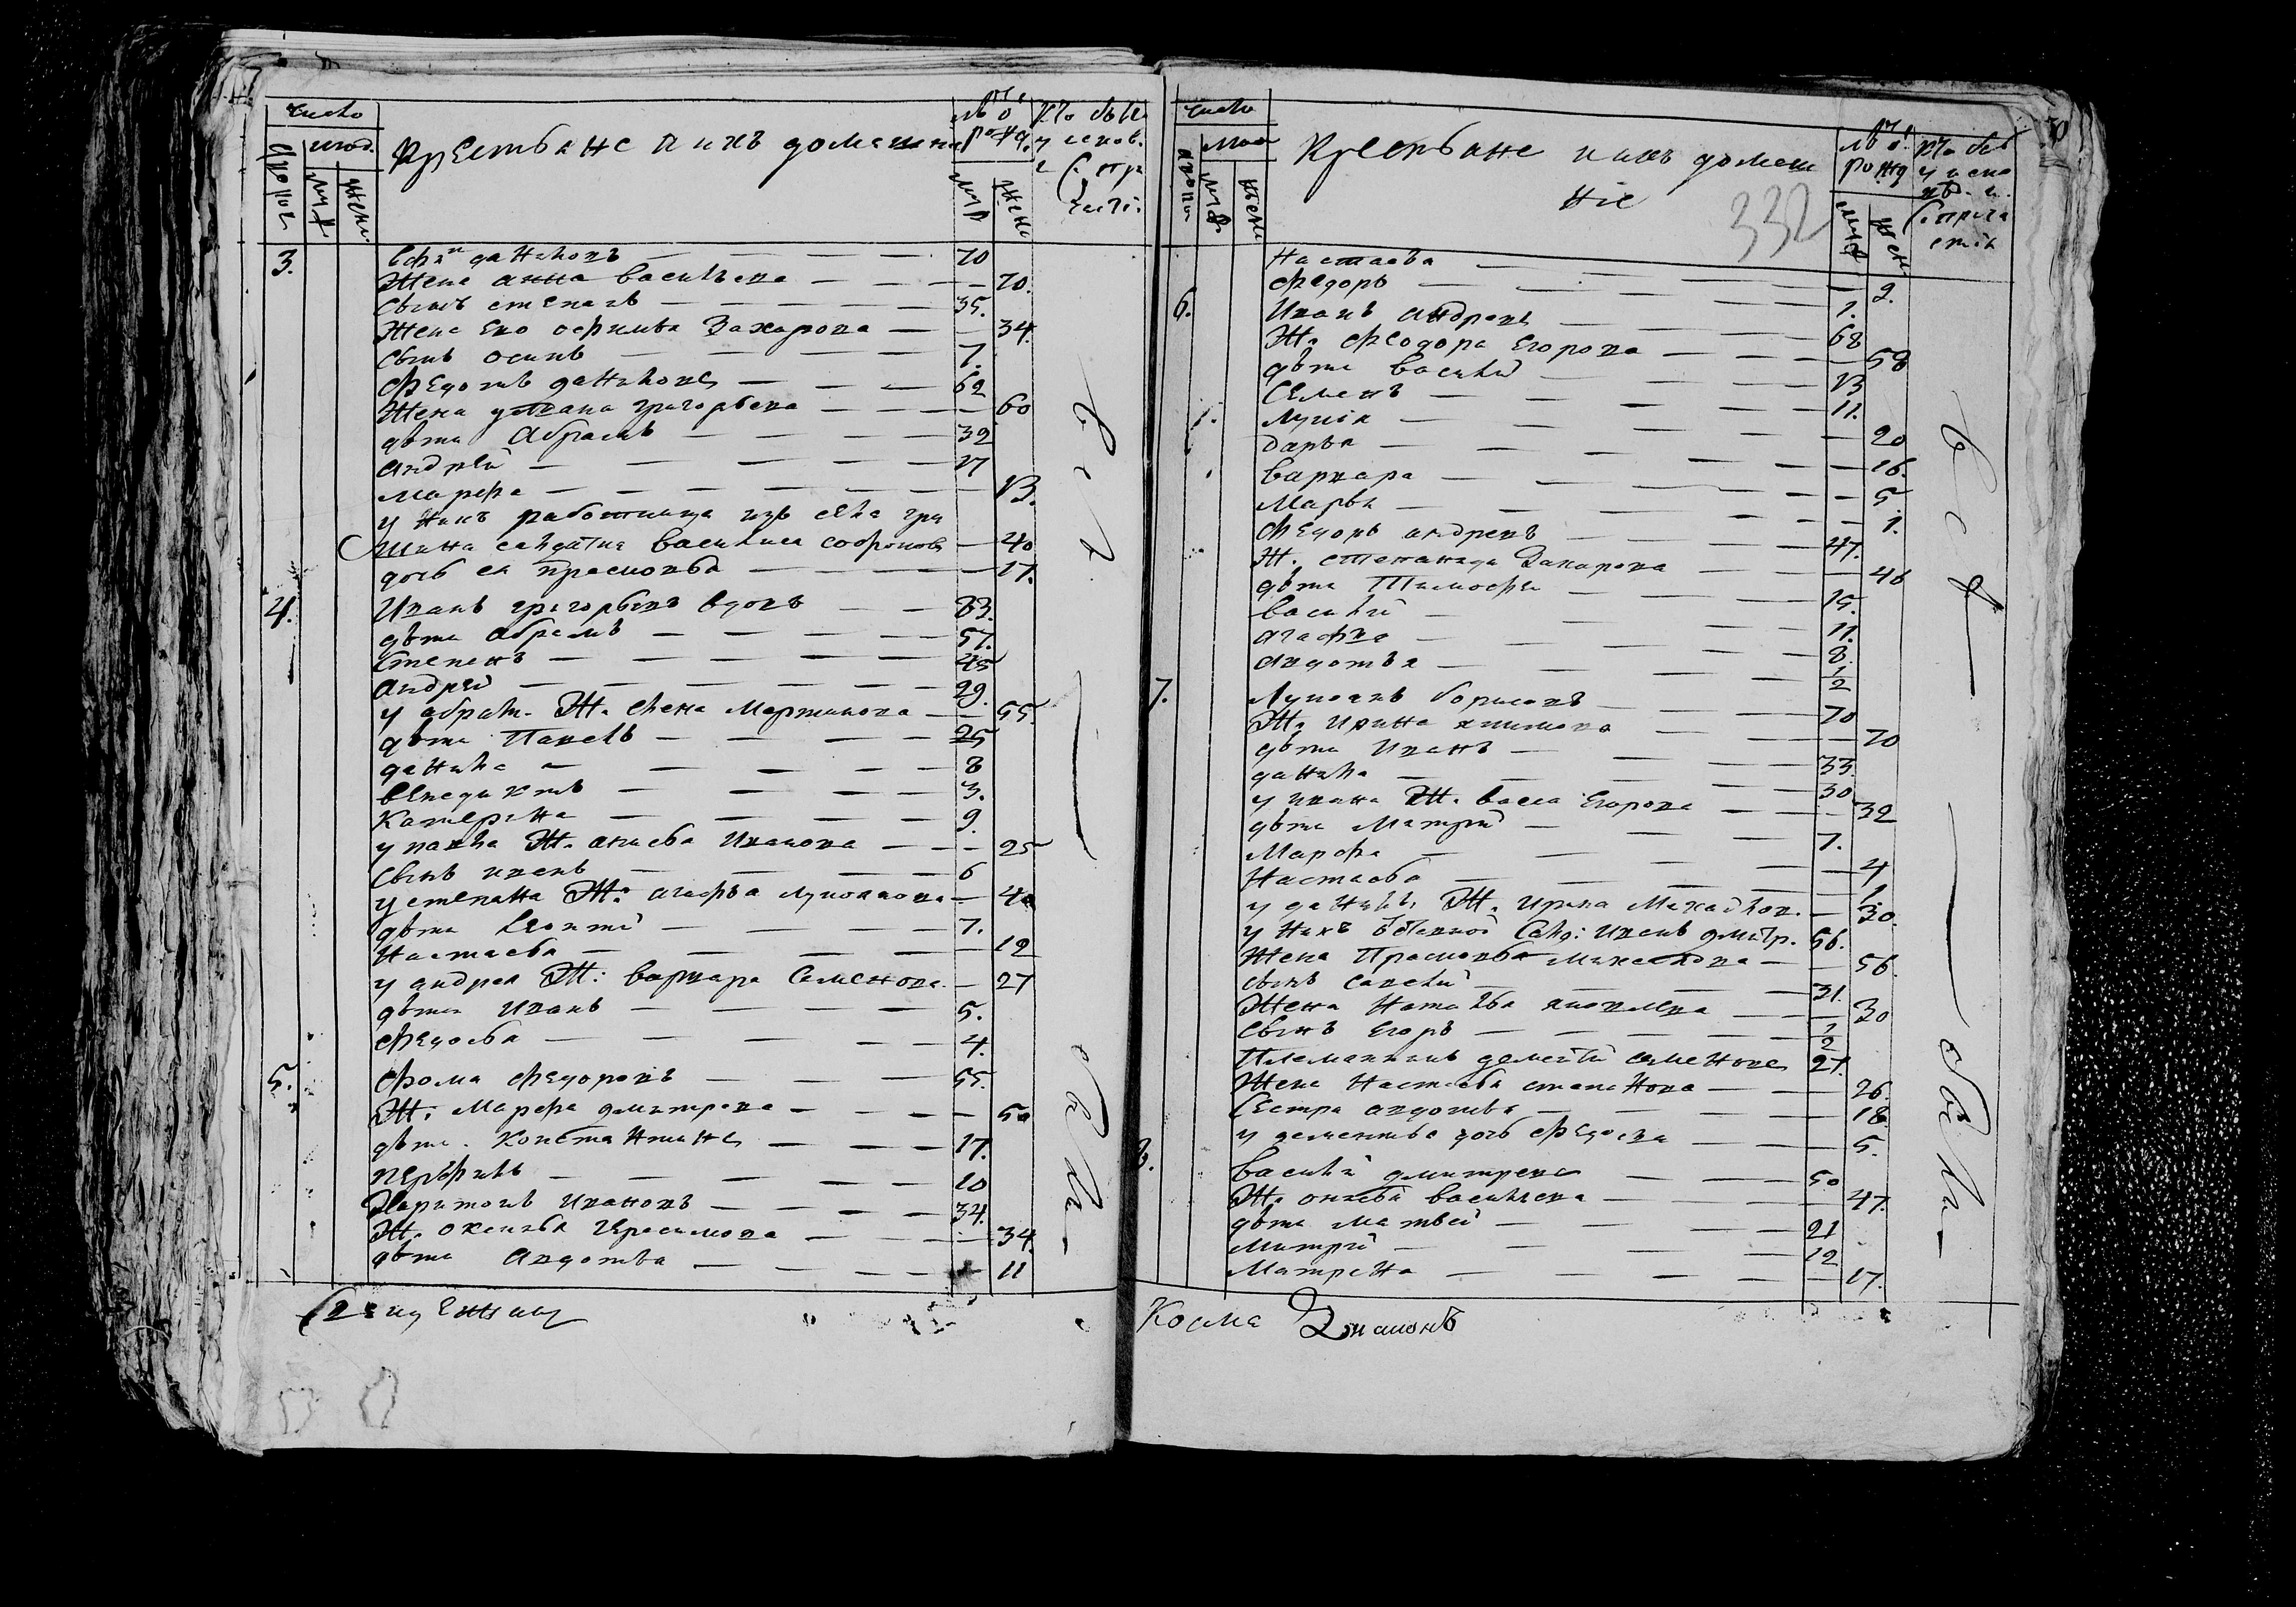 число
двороч люд. муж женс
Крестьяне и ихъ домашни
лѣт о рожд. муж женс
Кто былъ у испов. и С. при части:
3. даниловъ — 70
Жена анна васильева — 70.
сынъ степанъ — 35.
Жена Его офимья Захарова — 34.
сынъ осипъ — 7.
Федотъ даниловъ — 62
Жена ульяна григорьева — 60
дѣти Абрамъ — 32
андрей — 17
марфа — 13.
у нихъ работница изъ села гри
шина салдатка василиса софронов — 40
дочь ея прасковья — 17.
4. Иванъ григорьевъ вдовъ — 83.
дѣти абрамъ — 57.
Степанъ — 45
андрей — 29.
у абрам. Ж. Елена Мартинова — 55
дѣти Павелъ — 25
данила — 8
венедиктъ — 3.
Катерина — 9.
у павла Ж. анисья Иванова — 25
сынъ иванъ — 6
у степана Ж: агафья лукоянова — 40
дѣти леонтей — 7.
Настасья — 12
у андрея Ж: варвара Семенова — 27
дѣти иванъ — 5.
Федосья — 4.
5. Фома Федоровъ — 55.
Ж. Марфа дмитрева — 50
дѣти. Константинъ — 17.
перфилъ — 10
Харитонъ Ивановъ — 34.
Ж. оксинья герасимова — 34.
дѣти Авдотья — 11
всѣ
были
священникъ
число
двороч люд муж женс
Крестьяне и ихъ домаш
ніе
332
лѣт. рожд муж женс
Кто был у испо в. и. С. прича стія
Настасья — 2.
Федоръ — 1.
6. Иванъ андреевъ — 68
Ж. Феодора Егорова — 58
дѣти василий — 13
Семенъ — 11.
лукія — 20
дарья — 16.
варвара — 5
Марья — 1.
Федоръ андреевъ — 47.
Ж. степанида Захарова — 46
дѣти Тимофей — 15.
василий — 11.
агафья — 8.
авдотья — 1/2
7. Лукоянъ борисовъ — 70
Ж. Ирина климова — 70
дѣти Иванъ — 33.
данила — 30
у ивана Ж. васса Егорова — 32
дѣти Митрій — 7.
Марфа — 4
Настасья — 1.
у данилы Ж. Ирина Михайлов. — 30.
у нихъ салд: иванъ дмитр. 56.
Жена Прасковья михайлова — 56
сынъ савелий — 31.
Жена Наталья — 30
сынъ Егоръ — 1/2
Племянникъ дементий семенов 27.
Жена Настасья степанова — 26.
Сестра авдотья — 18
у дементья дочь Федосья — 5.
8. василий дмитревъ — 50
Ж. анисья васильева — 47.
дѣти матвей — 21
Митрій — 12
Матрена — 17.
всѣ
были
Косма